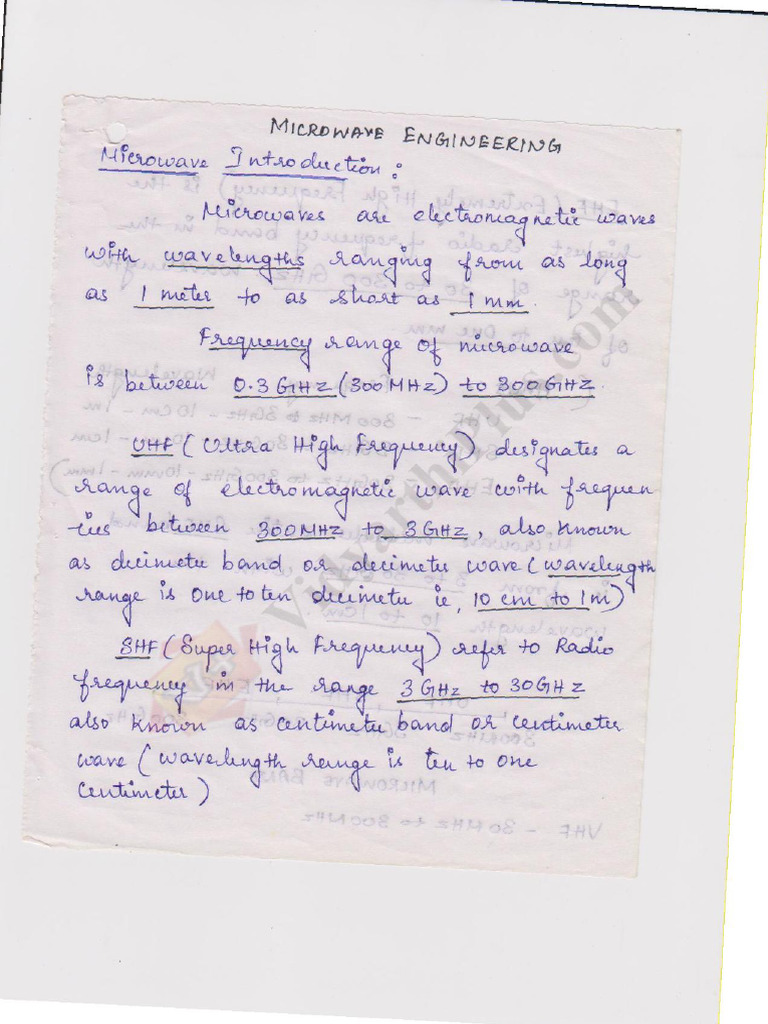 MICROWAVE ENGINEERING
Microwave Introduction :
Microwaves are electromagnetic waves
with wavelengths ranging from as long
as 1 meter to as short as 1 mm.
Frequency range of microwave
is between 0.3 GHz (300 MHz) to 300 GHz.
UHF ( Ultra High Frequency) designates a
range of electromagnetic wave with frequen
-cies between 300MHz to 3GHz, also known
as decimeter band or decimeter wave ( wavelength
range is one to ten decimeter ie, 10 cm to 1m)
SHF ( Super High Frequency) refer to Radio
frequency in the range 3 GHz to 30 GHz
also known as centimeter band or centimeter
wave ( wavelength range is ten to one
centimeter )
VidyarthiPlus.com